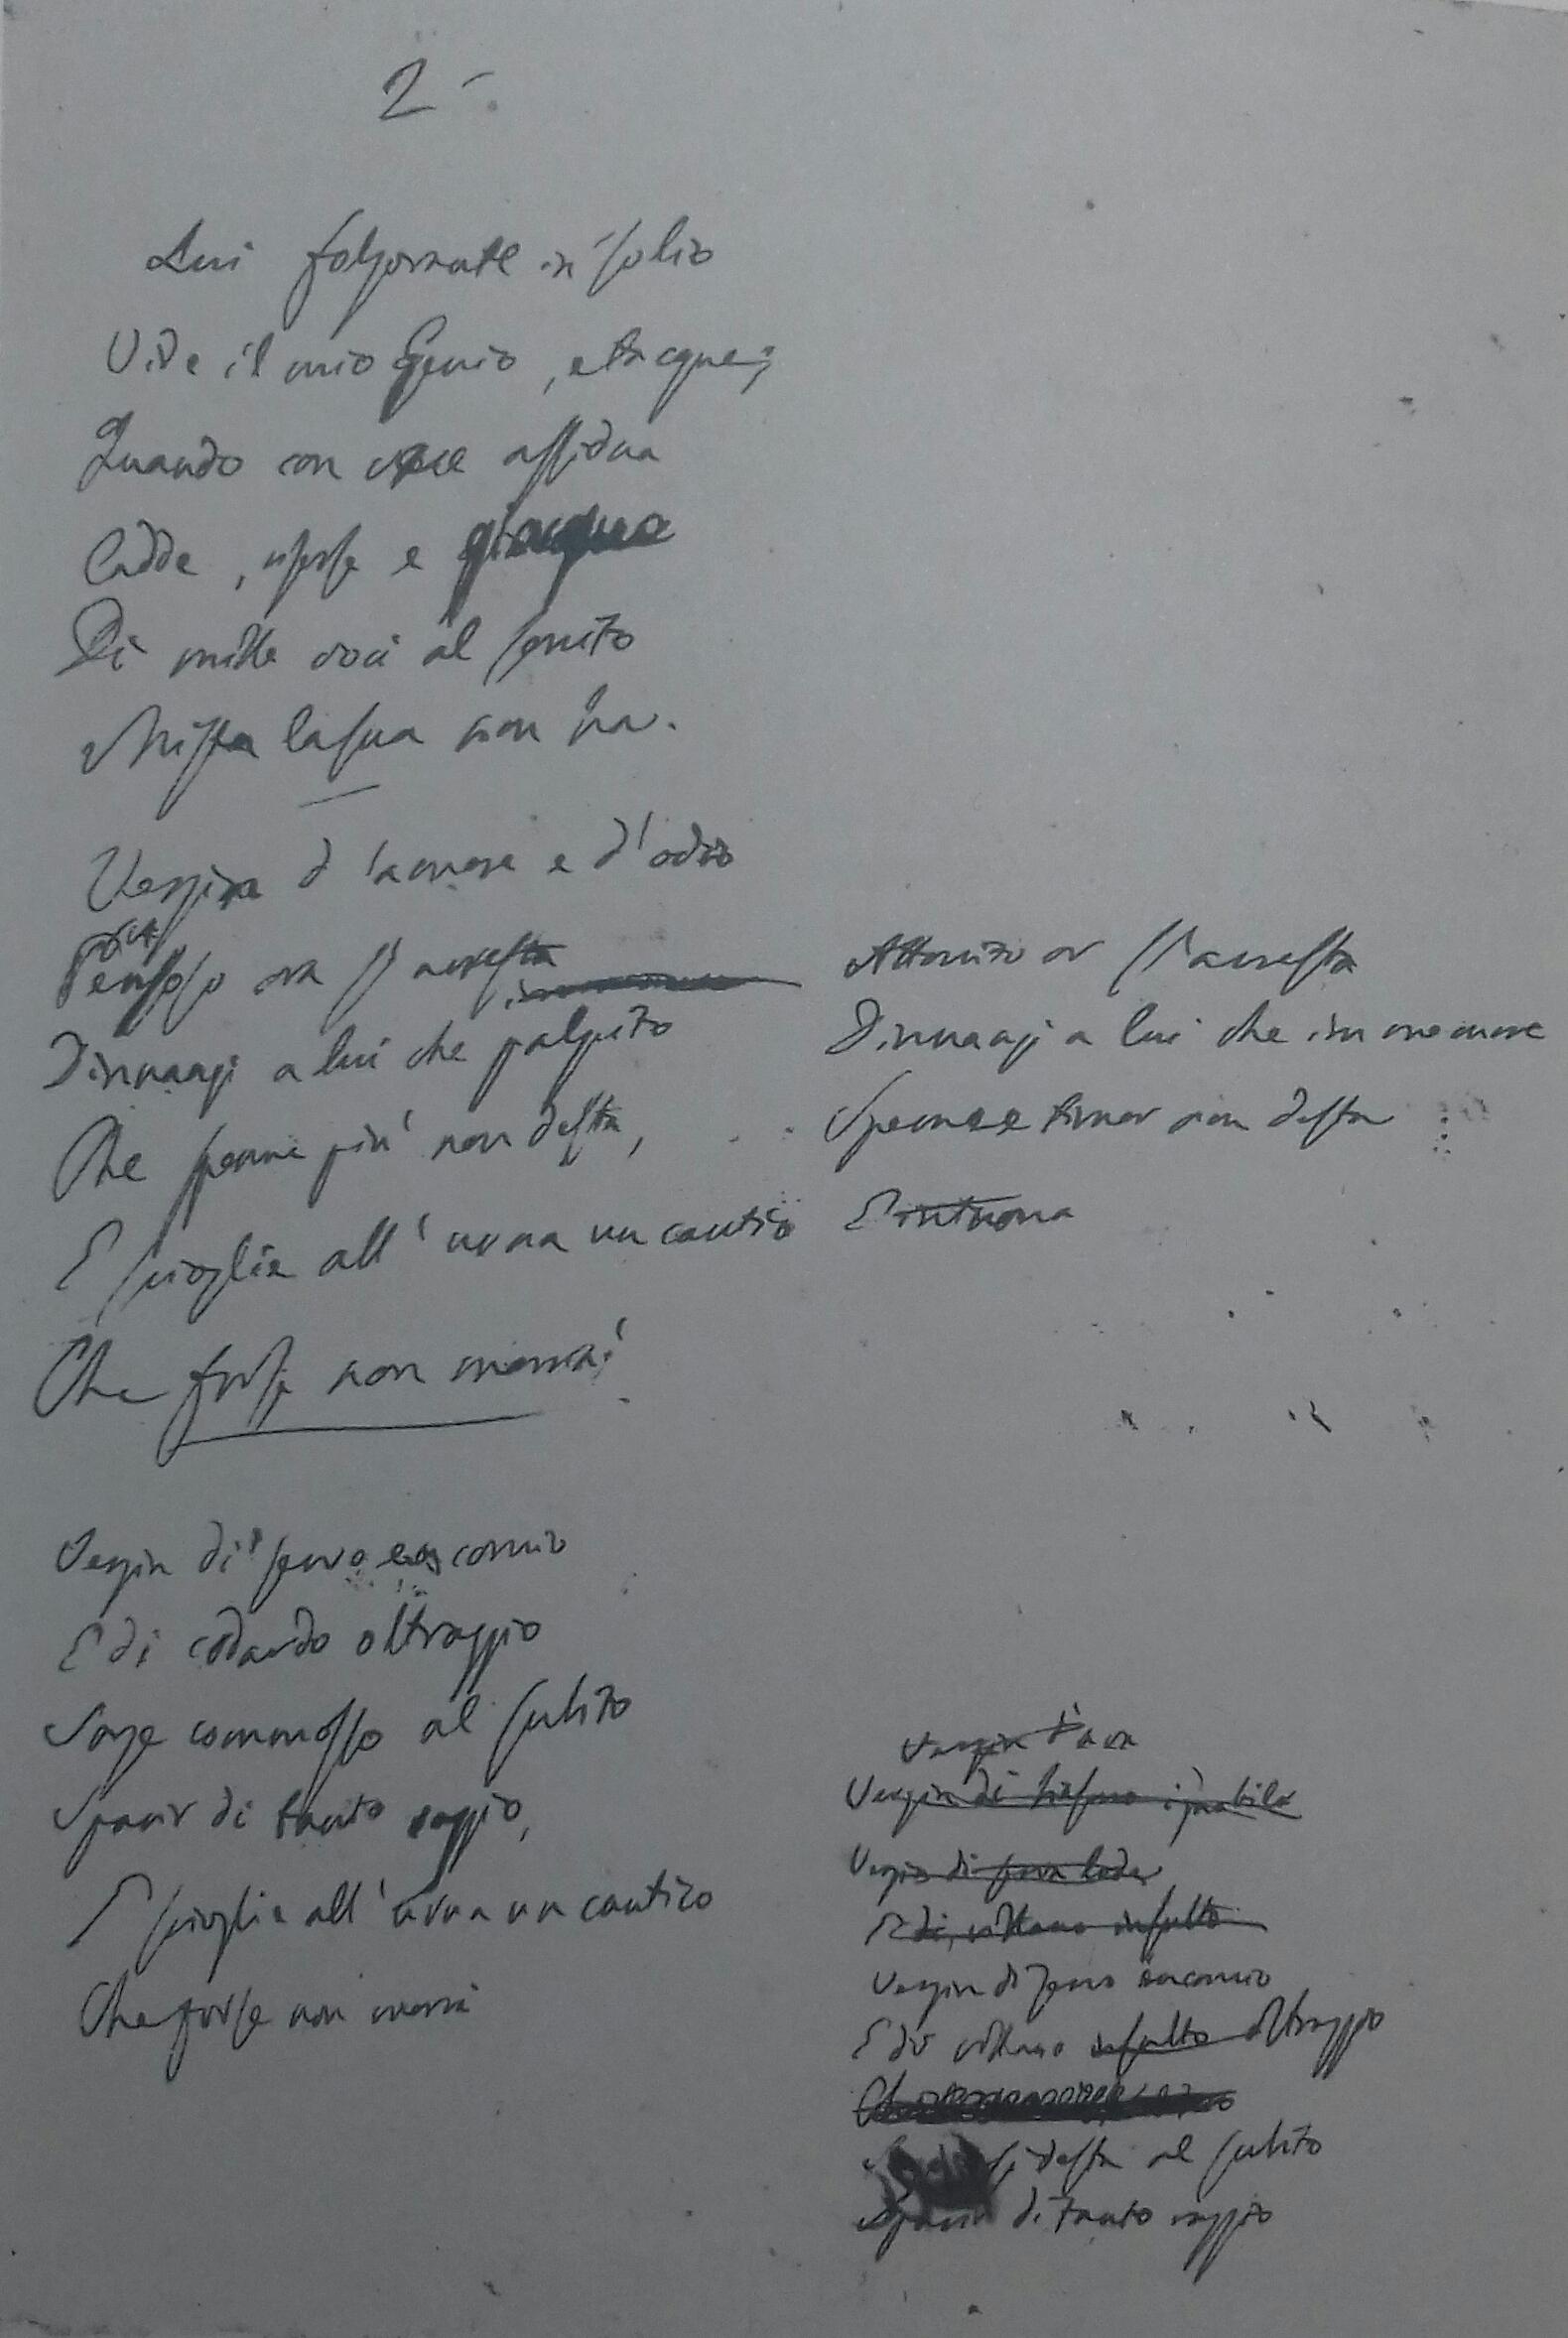 2 -
Lui folgorante in solio
Vide il mio Genio, e tacque;
Quando con vece assidua
Cadde, risorse e giacque
Di mille voci al sonito
Mista la sua non ha.
Vergine d'amore e d'odio
Pensoso ora s'arresta
Dinnanzi a lui che palpito
Che speme più non desta,
E scioglie all'urna un cantico
Che forse non morrà!
Attonito or s'arresta
Dinnanzi a lui che immemore
Speme e timor non desta
E intuona
Vergin di servo encomio
E di codardo oltraggio
Sorge commosso al subito
Sparir di tanto raggio,
E scioglie all'urna un cantico
Che forse non morrà
Vergin d'ara
Vergin di
Vergin di serva lode
E di villano insulto
Vergin di servo encomio
E di villano insulto oltraggio
si desta al subito
Sparir di tanto raggio